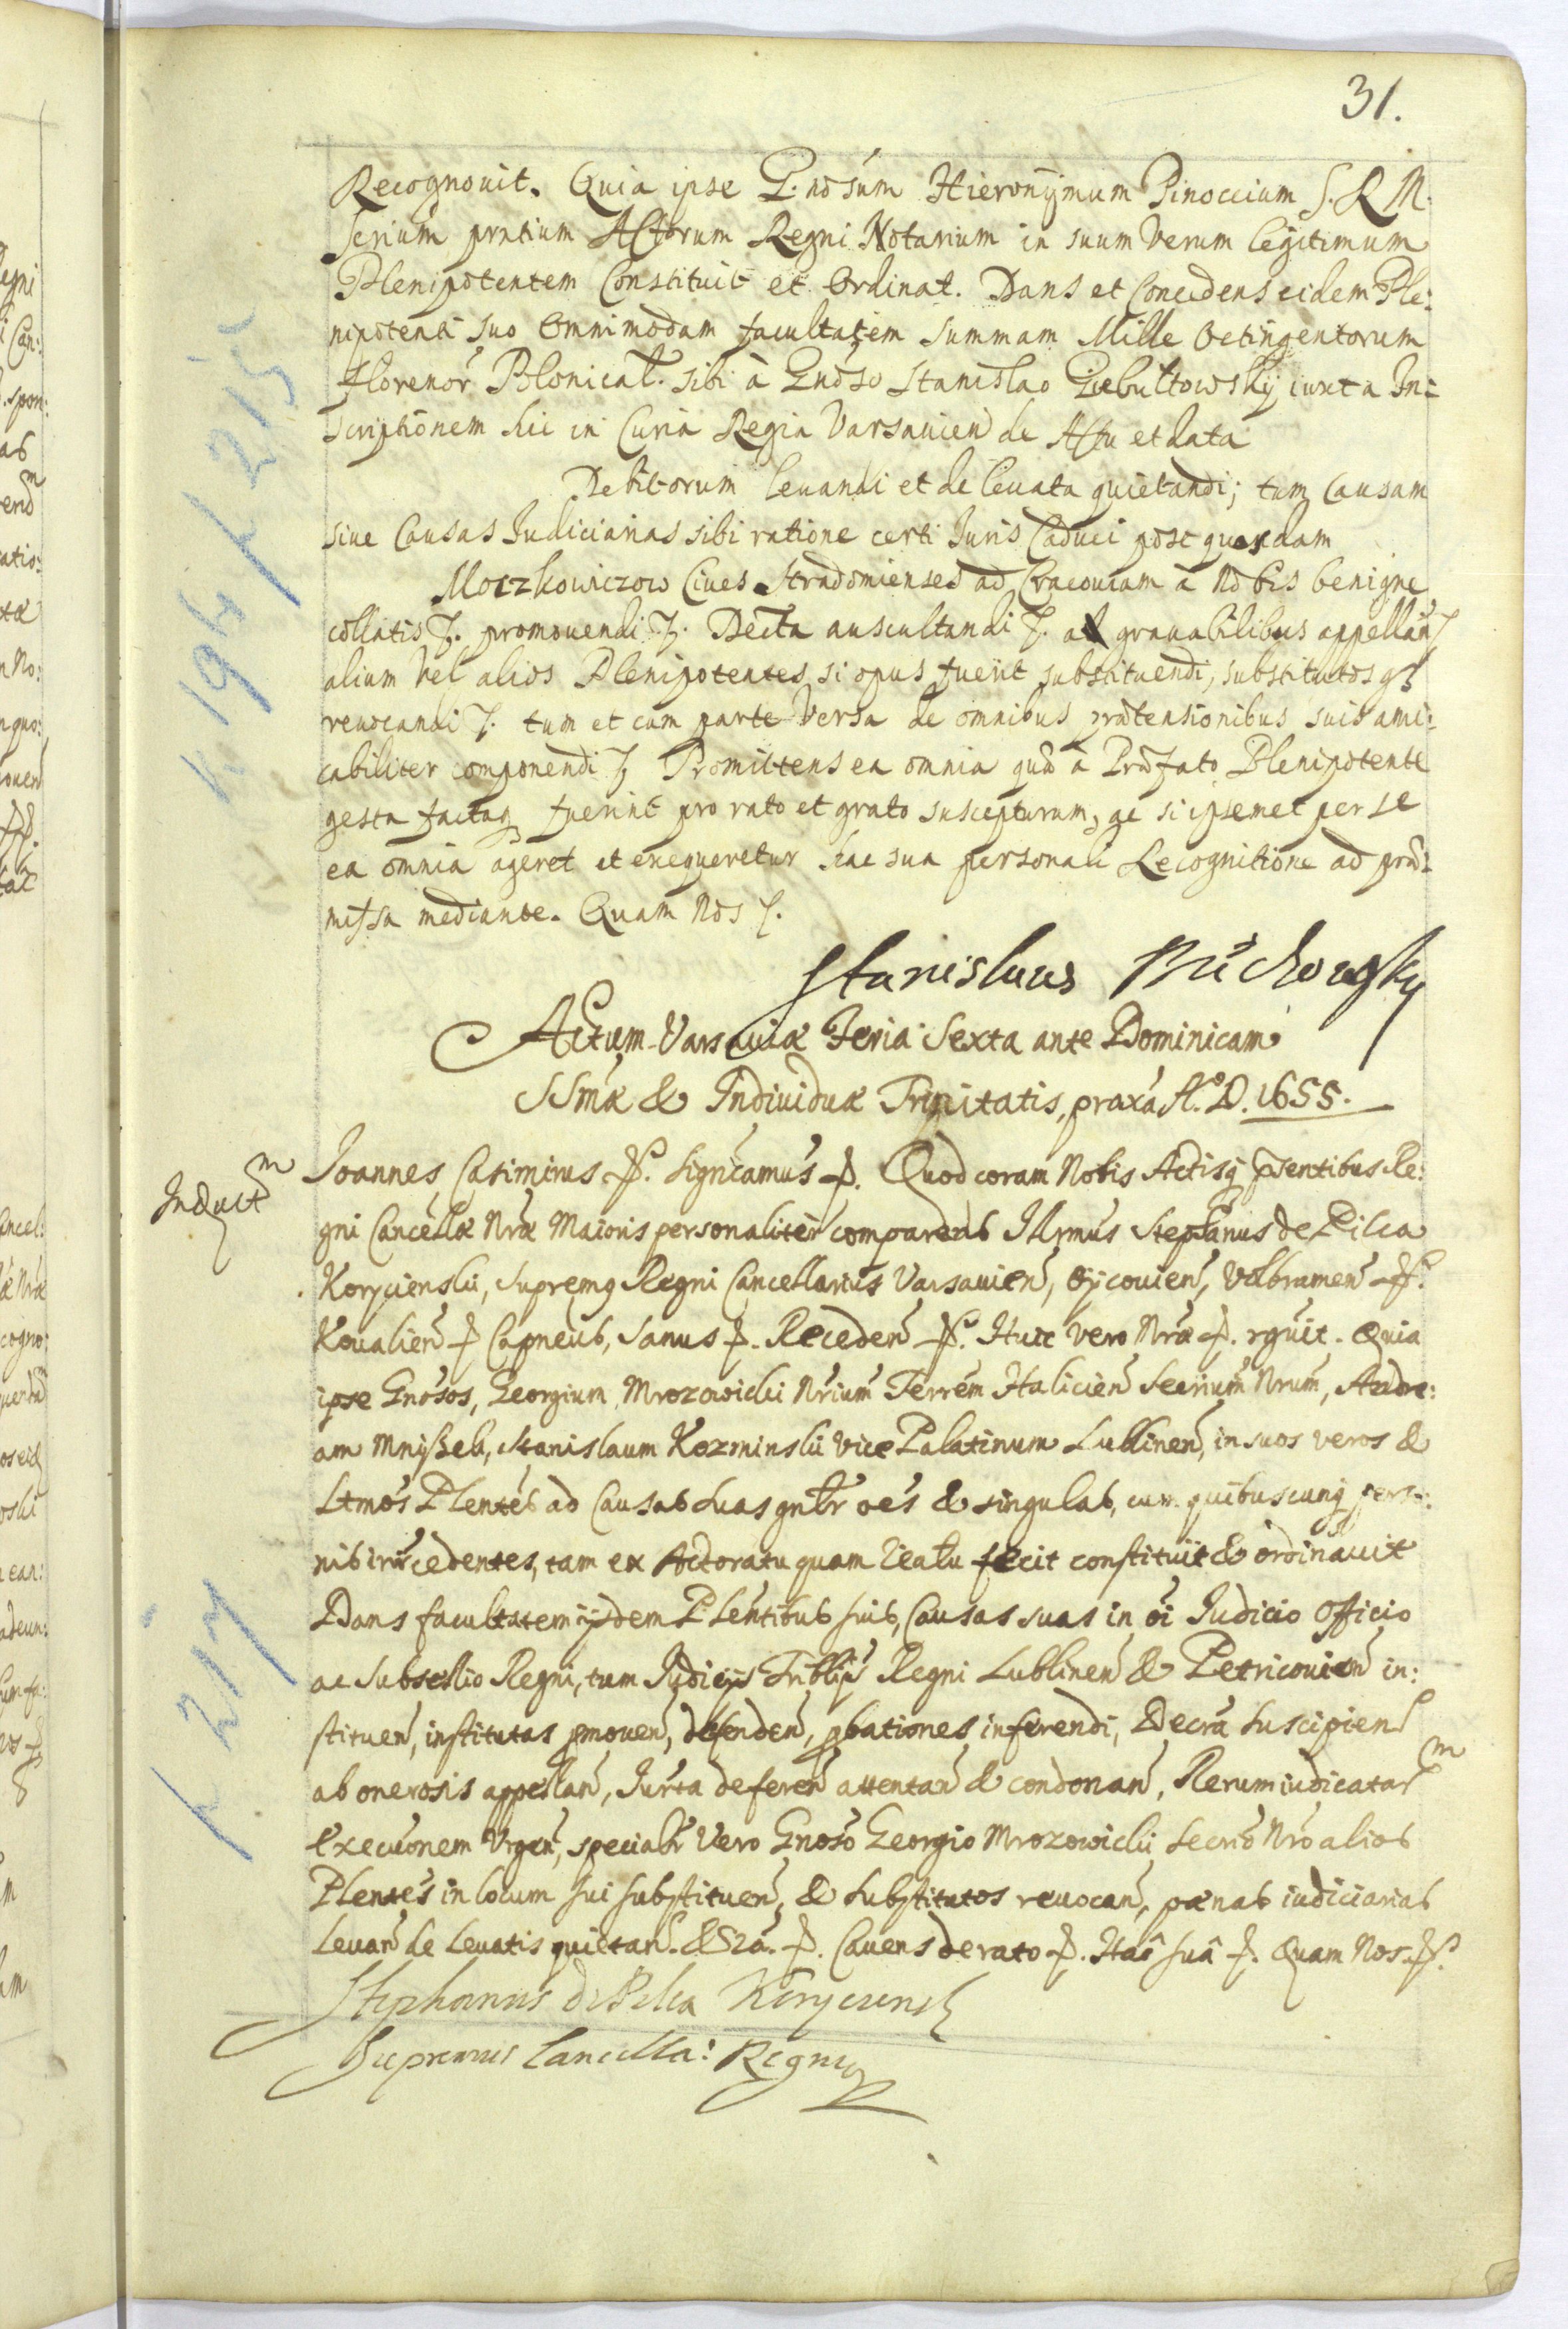 31.
Recognouit. Quia ipse G. nosum Hieronymum Pinoccium S. R M.
Scrium pntium Actorum Regni Notarium in suum Verum legitimum
Plenipotentem Constituit et Ordinat. Dans et Concedens eidem Ple:
nipotenti suo Omnimodam facultatem summam Mille Octingentorum
florenor Polonical. sibi à Gnoso Stanislao Giebułtowsky iuxta In:
scriptionem hic in Curia Regia Varsauien de Actu et data
Debitorum leuandi et de leuata quietandi; tum Causam
siue Causas Iudiciarias sibi ratione certi Iuris Caduci post quosdam
Moczkowiczow Ciues Stradomienses ad Cracouiam à Nobis benigne
collatis promouendi Decta auscultandi grauabilibus appellan
alium vel alios Plenipotentes si opus fuerit substituendi, substitutos
reuocandi tum et cum parte Versa de omnibus prætensionibus suis ami:
cabiliter componendi Promittens ea omnia quæ à Præfato Plenipotente
gesta factaq fuerint pro rato et grato suscepturum, ac si ipsemet per se
ea omnia ageret et exequeretur hac sua personali Recognitione ad præ:
missa mediante. Quam Nos
Stanislaus
Actum Varsauiæ Feria Sexta ante Dominicam
SSmæ & Indiuiduæ Trinitatis, praxa Aº. D. 1655.
Induct m
Ioannes Casimirus Significamus Quod coram Nobis Actisq pſentibus Re:
gni Cancellæ Nræ Maioris personaliter comparens Illrmus Stephanus de Pilca
Koryciński, Supremg Regni Cancellarius Varsauien, Oycouien, Volbramen
Koualien Capneus, sanus Receden Huic Vero Nræ rguit. Quia
ipse Gnosos, Georgium Mrozowicki Nrium Terrem Halicien Secrium Nrum, Andre:
am Mnyszek, Stanislaum Kozminski Vice Palatinum Lublinen, in suos veros &
Ltmos Plentes ad Causas suas gnlr oes & singulas, cum quibuscunq perso:
nis intercedentes, tam ex Actoratu quam reatu fecit constituit & ordinauit
Dans facultatem ijsdem Plentibus suis, Causas suas in oi Iudicio Officio
ac Subsellio Regni, tum Iudicijs Tribblis Regni Lublinen & Petricouien in:
stituen, institutas pmouen, defenden, pbationes inferendi, Decra suscipien
ab onerosis appellan, Iurta deferen attentan & condonan, Rerum iudicatar m
Execuonem Vrgen, specialr Vero Gnoso Georgio Mrozowicki Secrio Nro alios
Plentes in locum sui substituen, & substitutos reuocan, pœnas iudiciarias
leuan de leuatis quietan. Cauens de rato Hac suâ Quam Nos
Stephanus de Pilca Koryczinsk
Supremus Cancella: Regni